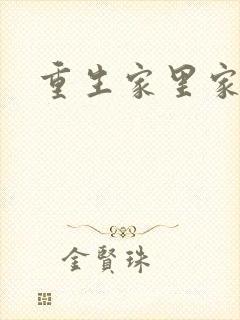 重生家里家
金賢珠